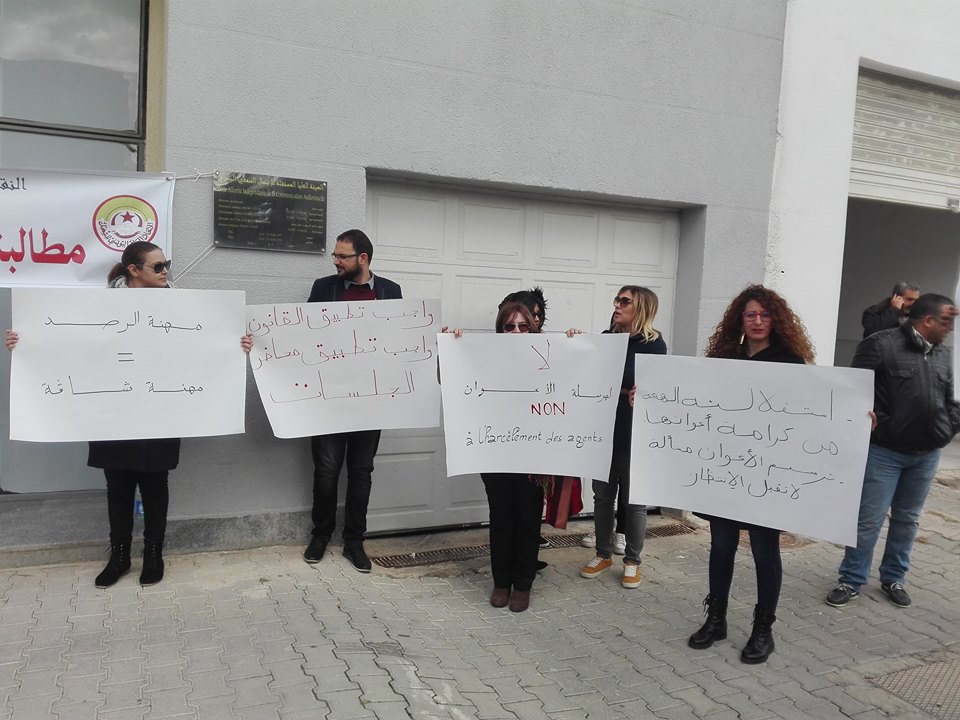 النق
مطالبنا
الهيئة العليا المستقلة للاتصال السمعي البصري
Haute Autorité Indépendante de la Communication Audiovisuelle
مهنة الرصد
=
مهنة شاقة
واجب تطبيق القانون
واجب تطبيق محاضر
الجلسات
لا
لهرسلة الأعوان
NON
à l'harcèlement des agents
. استقلالية الهيئة
من كرامة أعوانها
. ترسيم الأعوان مسألة
لا تقبل الإنتظار